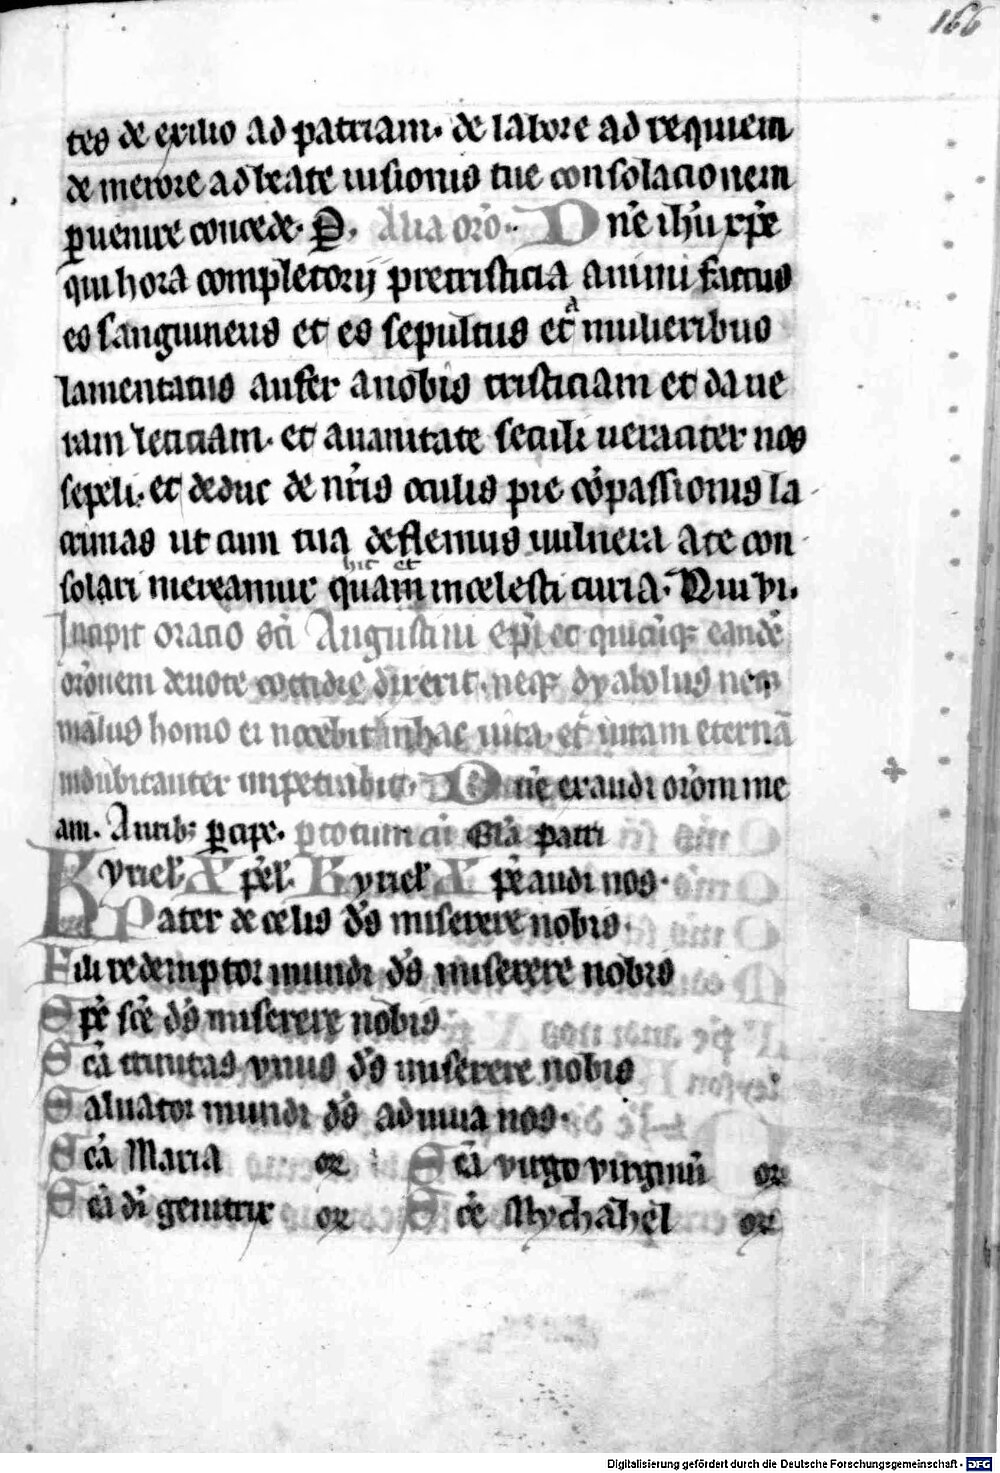 166
tes de exilio ad patriam. de labore ad requiem
de merore ad beate uisionis tue consolacionem
ꝑuenire concede. P. Alia oro. Dn̄e ih̄u xp̄e
qui hora completorij pre tristicia animi factus
es sanguineus et es sepultus et a mulieribus
lamentatus aufer a nobis tristiciam et da ue
ram leticiam. et a uanitate seculi ueraciter nos
sepeli. et deduc de nr̄is oculis pie cōpassionis la
crimas ut cum tua deflemus uulnera a te con
solari mereamur hic et quam in celesti curia. Qui vi.
Incipit oracio sc̄i Augustini ep̄i et quicūqꝫ eandē
orōnem deuote cottidie dixerit. neqꝫ dyabolus neqꝫ
malus homo ei nocebit in hac uita. et uitam eternā
indubitanter impetrabit. Dn̄e exaudi orōm me
am. Auribꝫ ꝑcipe. Gl̄a patri
Kyriel̄. Xp̄el̄. Kyriel̄ Xp̄e audi nos.
Pater de celis d̄s miserere nobis.
Fili redemptor mundi d̄s miserere nobis
Sp̄e sc̄e d̄s miserere nobis
Sc̄a trinitas vnus d̄s miserere nobis
Saluator mundi d̄s adiuua nos.
Sc̄a Maria or Sc̄a virgo virginū or
Sc̄a di genitrix or Sc̄e Mychahel or
Digitalisierung gefördert durch die Deutsche Forschungsgemeinschaft - DFG